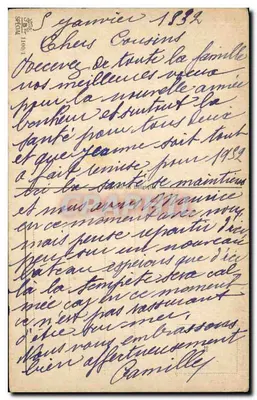 5 janvier 1932
Chers Cousins
Recevez de toute la famille
nos meilleures vœux
pour la nouvelle année
bonheur et surtout la
santé pour tous deux
et que Jeanne soit tout
à fait remise pour 1932
Ici la santé se maintient
et nous avons Maurice
en ce moment avec nous
mais pense repartir d'ici
peu sur un nouveau
bateau espérons que d'ici
là la tempête sera cal
mée car en ce moment
ce n'est pas rassurant
d'être sur mer.
Nous vous embrassons
bien affectueusement
Camille